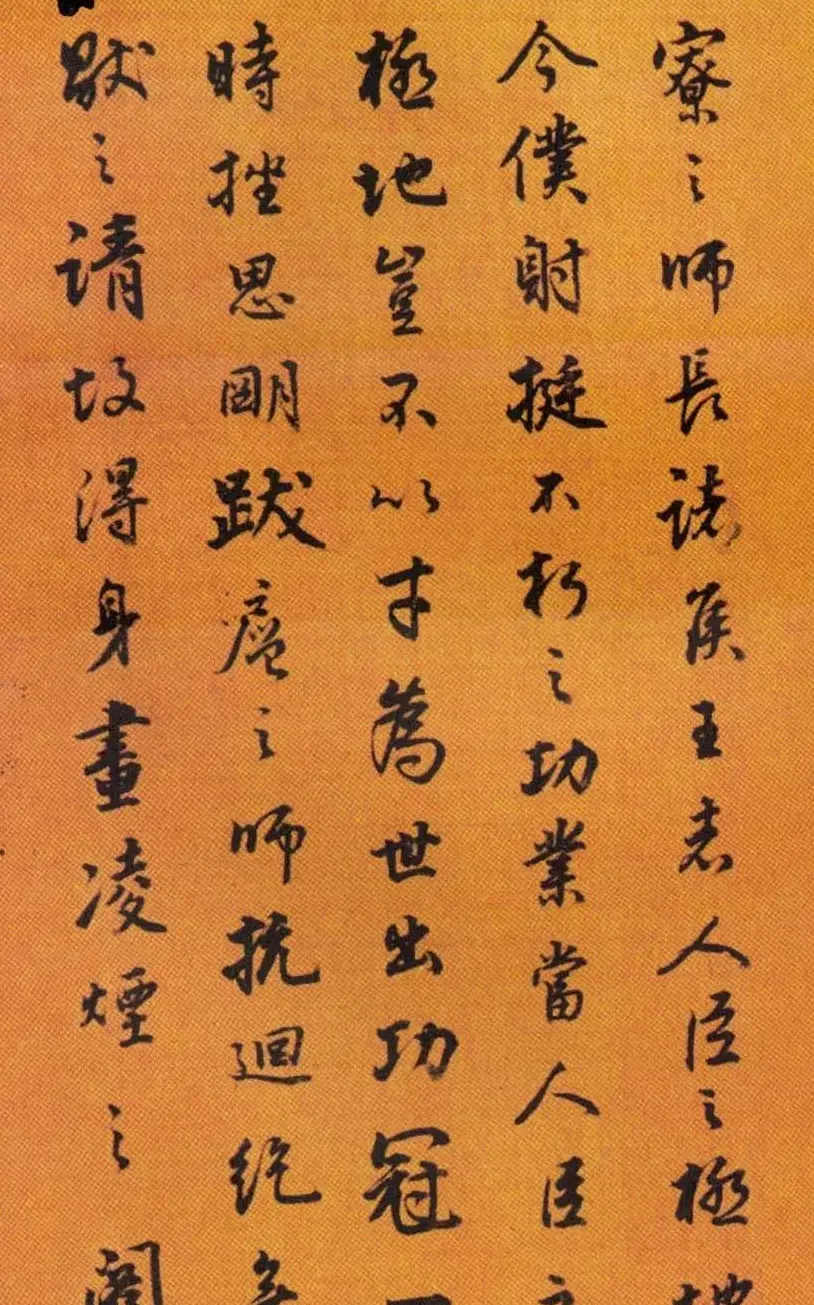 寮之师長諸侯王者人臣之極地
今僕射挺不朽之功業當人臣之
極地豈不以才為世出功冠一
時挫思明跋扈之师抗迴紇無
猒之請故得身畫凌煙之閣